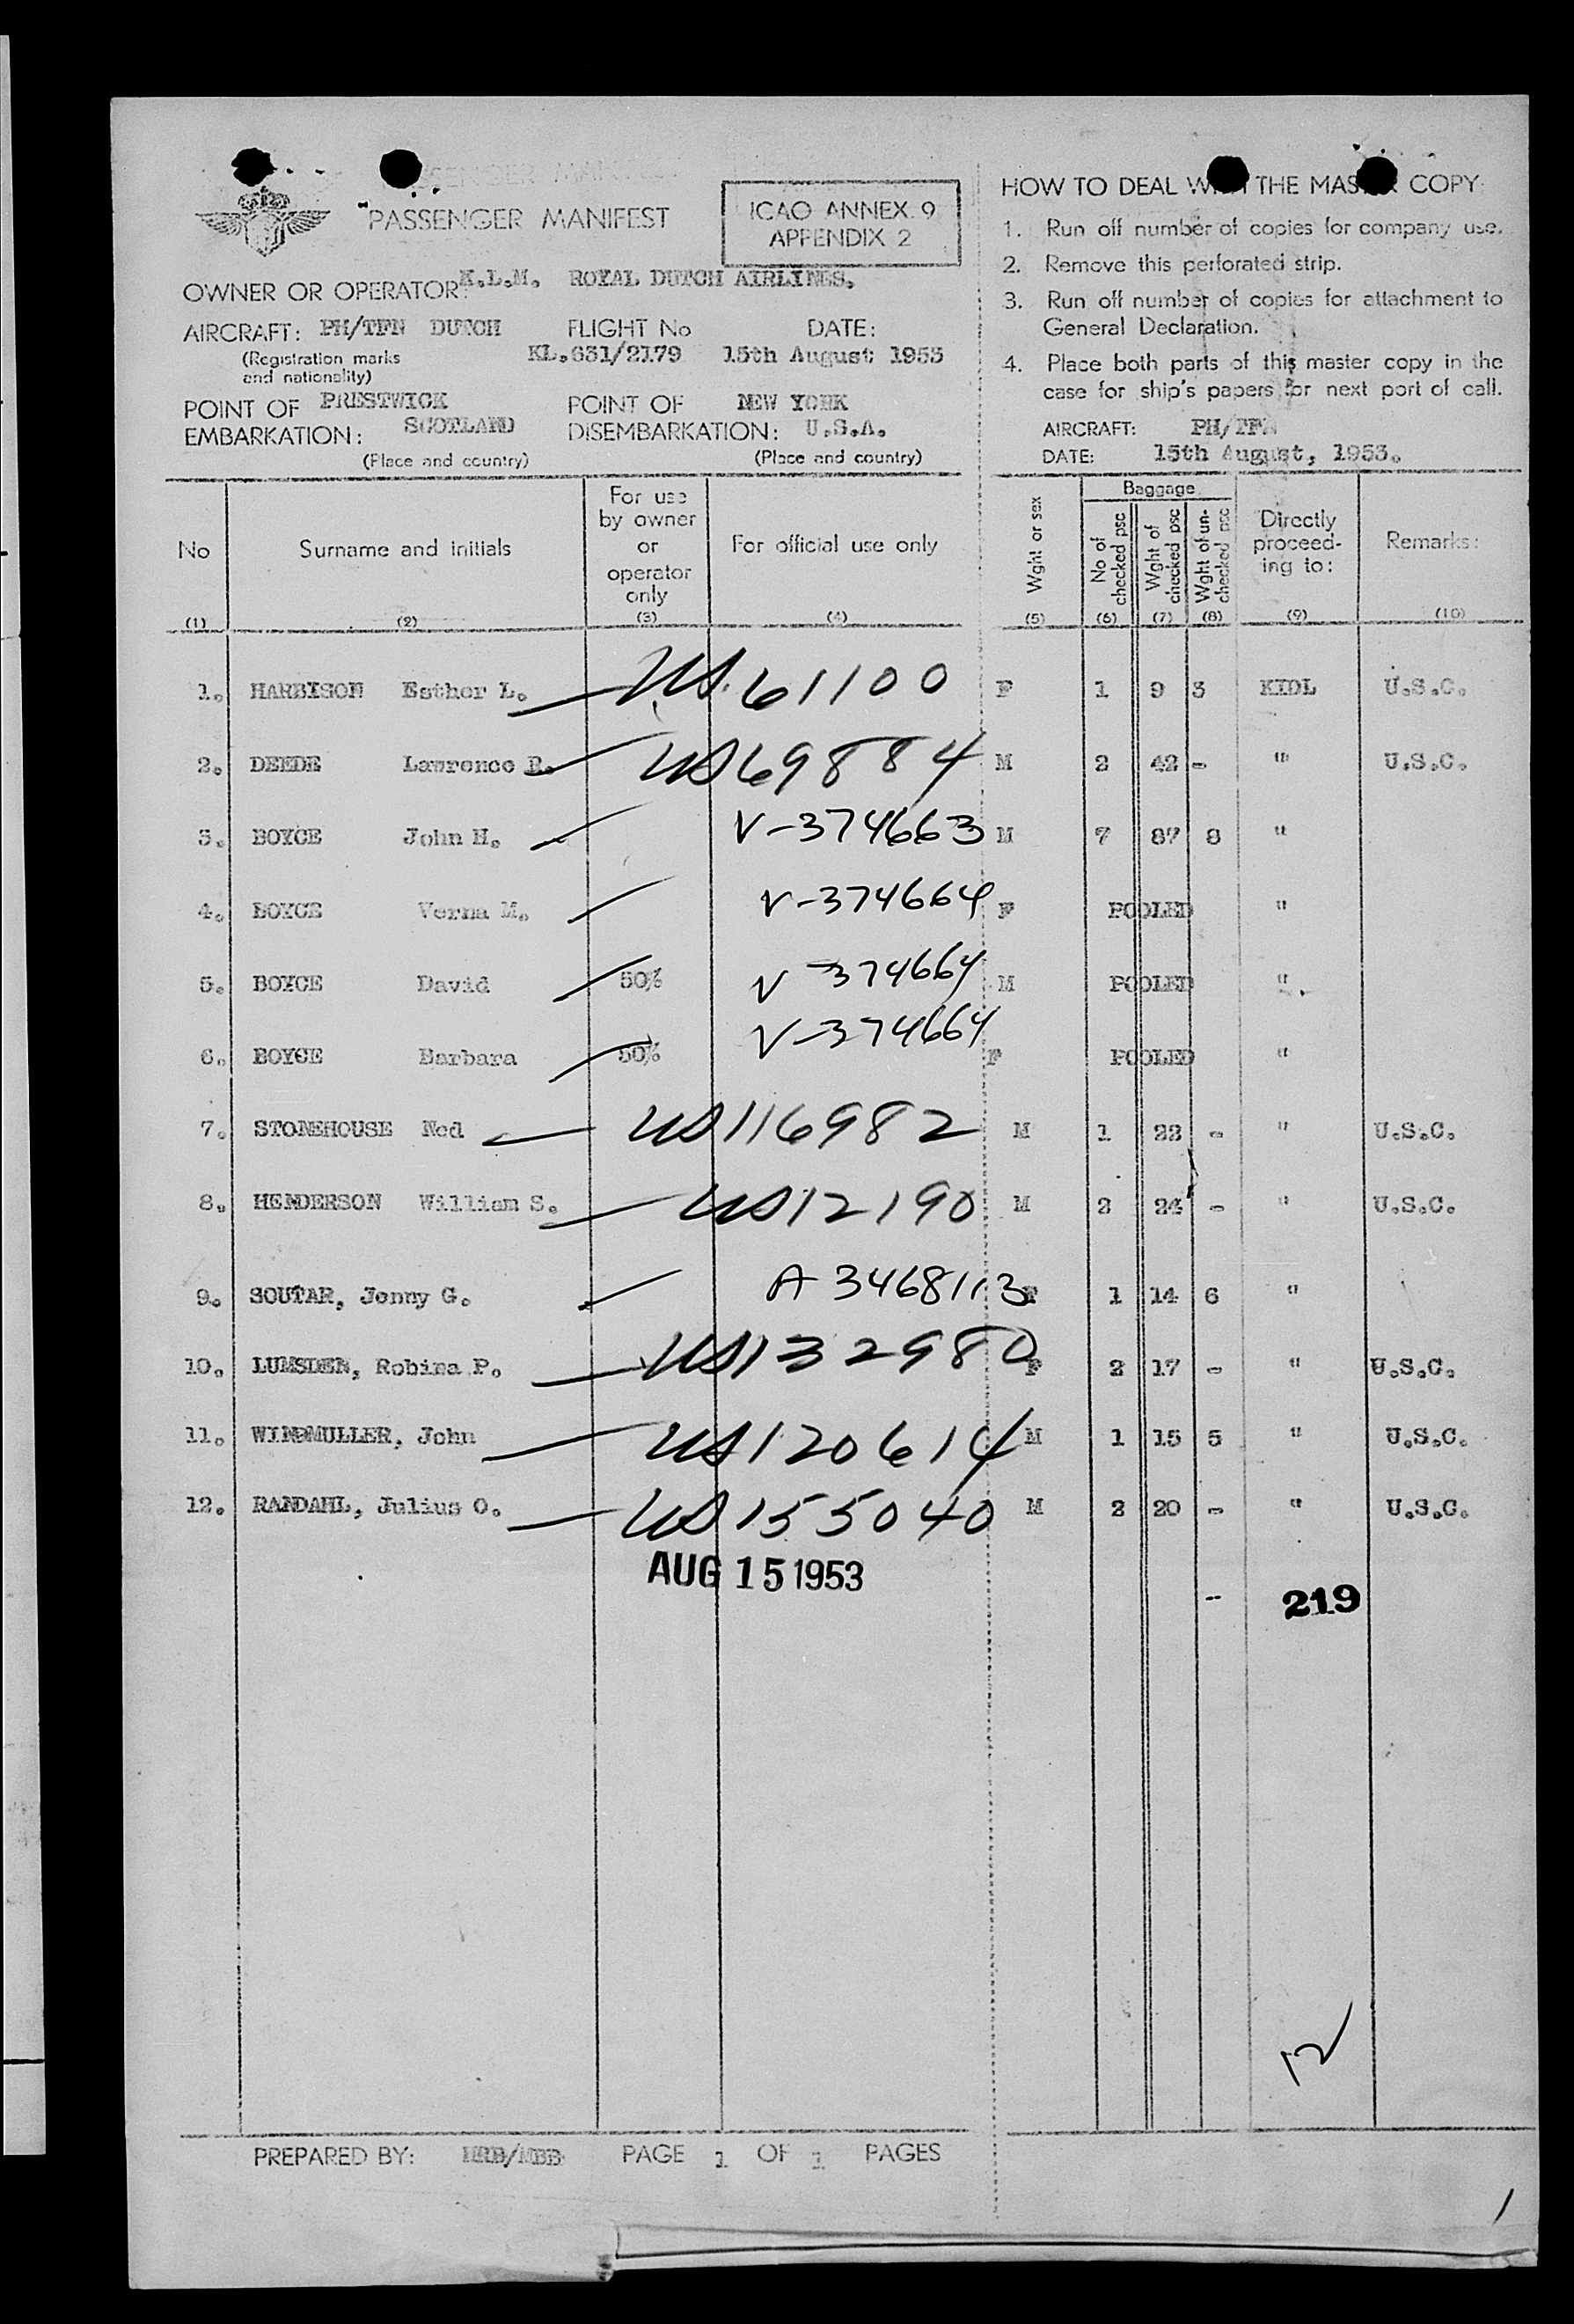 PASSENGER MANIFEST
ICAO ANNEX 9
APPENDIX 2
OWNER OR OPERATOR: K.L.M. ROYAL DUTCH AIRLINES.
AIRCRAFT: PH/TFN DUTCH FLIGHT No DATE:
(Registration marks KL.631/2179 15th August 1953
and nationality)
POINT OF PRESTWICK POINT OF NEW YORK
EMBARKATION: SCOTLAND DISEMBARKATION: U.S.A.
(Place and country) (Place and country)
HOW TO DEAL THE COPY
1. Run off number of copies for company use.
2. Remove this perforated strip.
3. Run off number of copies for attachment to
General Declaration.
4. Place both parts of this master copy in the
case for ship's papers for next port of call.
AIRCRAFT: PH/TFN
DATE: 15th August, 1953.
No Surname and initials For use by owner or operator only For official use only Wght or sex Baggage No of checked psc Wght of checked psc Wght of un-checked psc Directly proceed-ing to: Remarks:
(1) (2) (3) (4) (5) (6) (7) (8) (9) (10)
1. HARBISON Esther L. US 61100 F 1 9 3 KIDL U.S.C.
2. DEEDE Lawrence R. US 69884 M 2 42 - " U.S.C.
3. BOYCE John H. V-374663 M 7 87 8 "
4. BOYCE Verna M. V-374664 F POOLED "
5. BOYCE David 50% V-374664 M POOLED "
6. BOYCE Barbara 50% V-374664 F POOLED "
7. STONEHOUSE Ned US 116982 M 1 22 - " U.S.C.
8. HENDERSON William S. US 12190 M 2 24 - " U.S.C.
9. SOUTAR, Jenny G. A 3468113 F 1 14 6 "
10. LUMSDEN, Robina P. US 132980 F 2 17 - " U.S.C.
11. WINDMULLER, John US 120614 M 1 15 5 " U.S.C.
12. RANDAHL, Julius O. US 155040 M 2 20 - " U.S.C.
AUG 15 1953
-- 219
12
PREPARED BY: PAGE 1 OF 1 PAGES
1